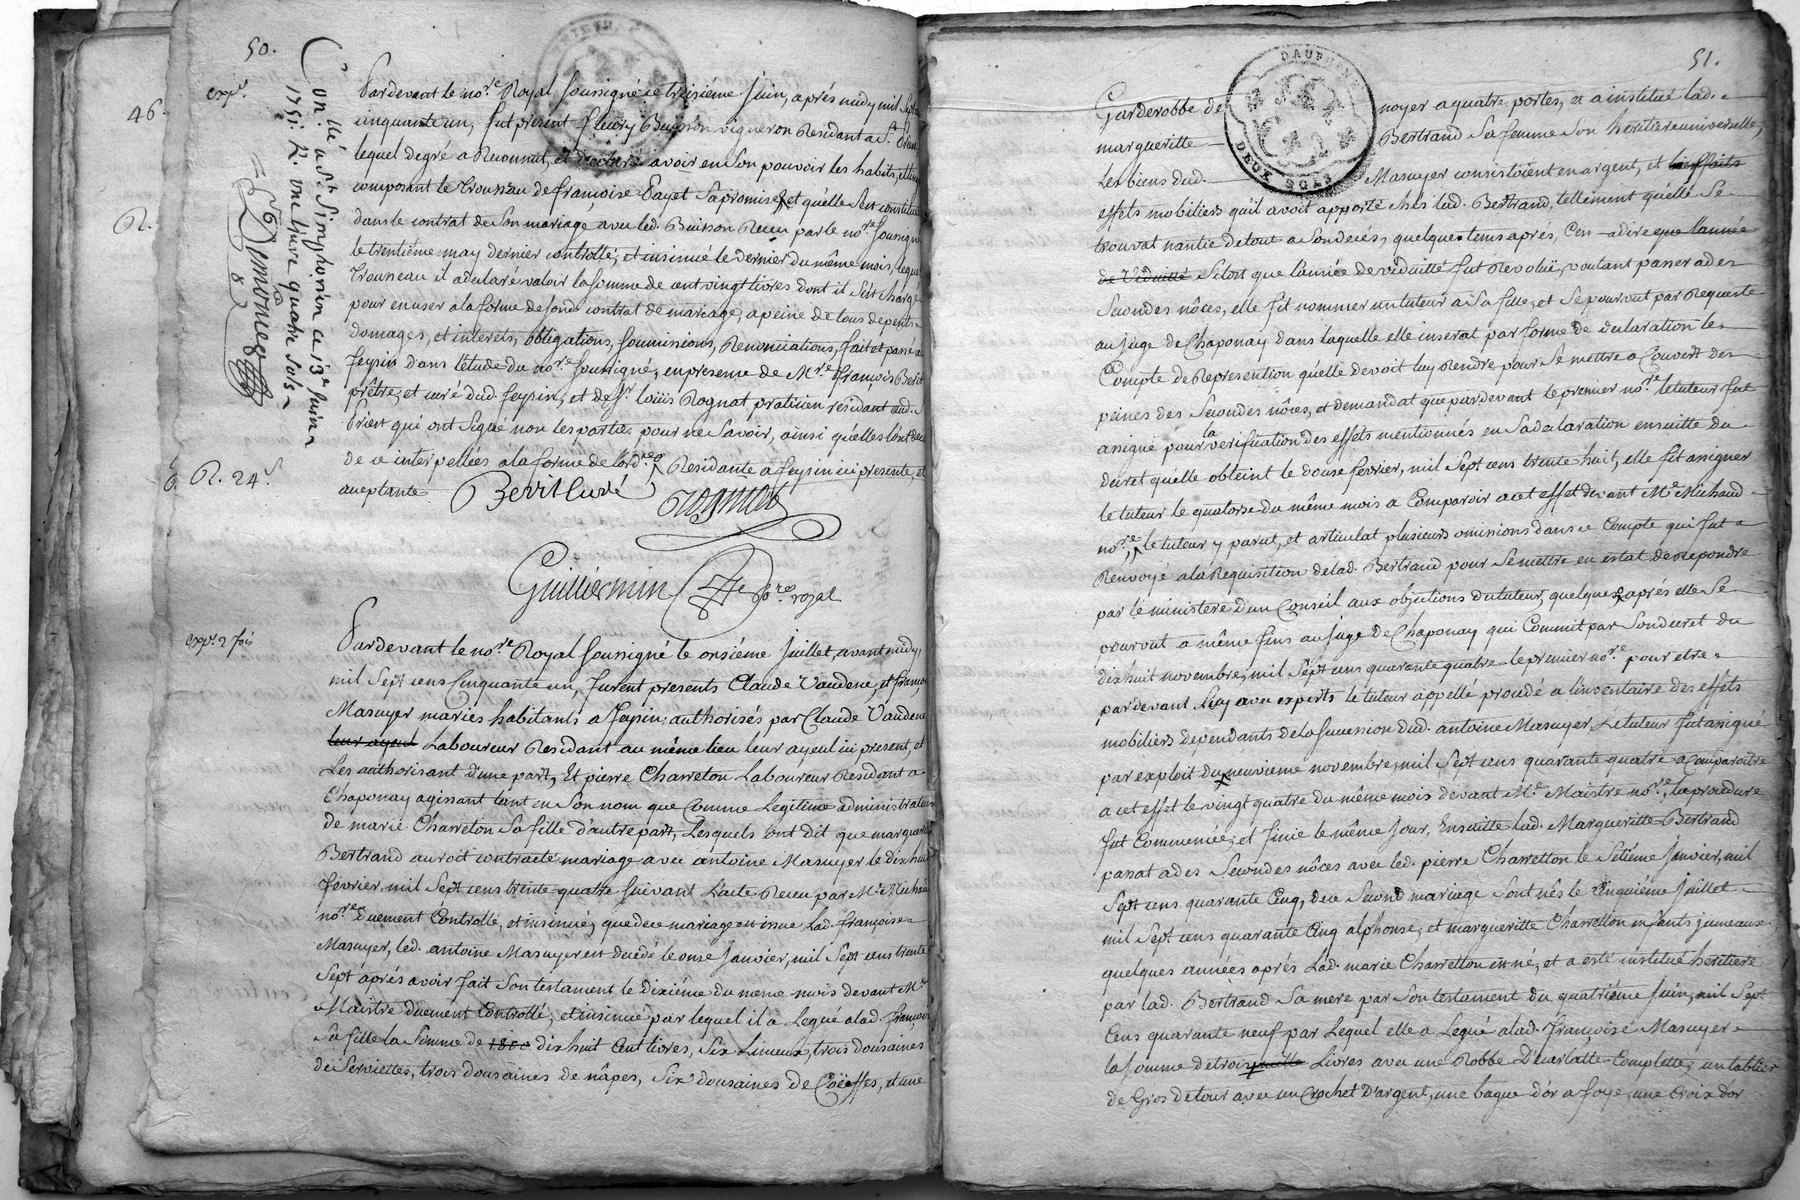 50.
46.
R.
exp.e
Con.lé a St Simphorien ce 13e Juin
1751. R. une livre quatre sols
Demonceo
Pardevant le no.re Royal soussigné ce treisiéme Juin, aprés midy mil sept cens
cinquante un, fut present fleury Buisson vigneron Residant a St. Priest
lequel degré a Reconnut, et declaré avoir en son pouvoir les habits,
composant le trousseau de francoise Payet sa promise, et qu'elle s'est constitué
dans le contrat de son mariage avec led. Buisson Receu par le no.re soussigné
le trentiéme may dernier controllé, et insinué le dernier du même mois, lequel
trousseau il a declaré valoir la somme de cent vingt livres dont il s'est chargé
pour en user a la forme de sond. contrat de mariage, a peine de tous depents
domages, et interets, obligations, soumissions, Renonciations, fait et passé a
feysin dans l'etude du no.re soussigné, en presence de Mre françois Berit
prêtre, et curé dud. feysin, et de sr. loüis Rognat praticien residant aud. St
Priest qui ont signé non les parties pour ne savoir, ainsi quelles l'ont
de ce interpellées a la forme de l'ord.ce Residante a feysin ici presente, et
aceptante
R. 24 s
Berit Curé
Rognat
Guilliermin no.re royal
exp. 2 fois
Pardevant le no.re Royal soussigné le onsiéme Juillet, avant midy,
mil sept cens Cinquante un, furent presents Claude Vaudene, et françoise
Masuyer mariés habitants a feysin, authorisés par Claude Vaudene
leur ayeul Laboureur Residant au même lieu leur ayeul ici present, et
les authorisant d'une part, Et pierre Charreton Laboureur Residant a
Chaponay agissant tant en son nom que Comme Legitime administrateur
de marie Charreton sa fille d'autre part, Lesquels ont dit que marguerite
Bertrand auroit contracté mariage avec antoine Masuyer le dix huit
fevrier mil sept cens trente quatre suivant l'acte Receu par Me Michaud
no.re Duement Controllé, et insinué, que de ce mariage est issue Lad. françoise
Masuyer, led. antoine Masuyer est decedé le onse Janvier, mil sept cens trente
sept aprés avoir fait son testament le dixiéme du meme mois devant Me
Maistre duement Controllé, et insinué par lequel il a Legué a lad. françoise
sa fille la somme de 1800 dix huit Cent livres, six Linceux, trois dousaines
de serviettes, trois dousaines de nâpes, six dousaines de Coëffes, et une
51.
DAUPHINE
DEUX SOLS
Garderobbe de noyer a quatre portes, et a institué lad.
margueritte Bertrand sa femme son heritiere universelle,
Les biens dud. Masuyer consistoient en argent, et
effets mobiliers qu'il avoit apporté chés lad. Bertrand, tellement qu'elle se
trouvat nantie de tout a son decés, quelques tems aprés, C'en-adire que l'année
de viduitté sitost que l'année de viduitté fut Revoluë, voulant passer a des
secondes nôces, elle fit nommer un tuteur a sa fille, et se pourvut par Requeste
au Juge de Chaponay dans laquelle elle inserat par forme de declaration le
Compte de Representation qu'elle devoit luy Rendre pour se mettre a Couvert des
peines des secondes nôces, et demandat que pardevant le premier no.re le tuteur fut
assigné pour la verification des effets mentionnés en sa declaration ensuitte du
decret quelle obtient le douse fevrier, mil sept cens trente huit, elle fit assigner
le tuteur le quatorse du même mois a Comparoir a cet effet devant Me Michaud
no.re, le tuteur y parut, et articulat plusieurs omissions dans ce Compte qui fut
Renvoyé a la Requisition de lad. Bertrand pour se mettre en estat de repondre
par le ministere d'un Conseil aux objections du tuteur, quelque aprés elle se
pourvut a même fins au Juge de Chaponay qui Commit par son decret du
dixhuit novembre, mil sept cens quarante quatre le premier no.re pour etre
pardevant Luy avec experts le tuteur appellé procedé a l'inventaire des effets
mobiliers dependants de la succession dud. antoine Masuyer, Le tuteur fut assigné
par exploit du neuvieme novembre, mil sept cens quarante quatre a Comparoître
a cet effet le vingt quatre du même mois devant Me Maistre no.re, la procedure
fut Commencée, et finie le même Jour, Ensuitte lad. Margueritte Bertrand
passat a des secondes nôces avec led. pierre Charretton le setieme Janvier, mil
sept cens quarante Cinq, de ce second mariage sont nés le Cinquiéme Juillet
mil sept cens quarante Cinq alphonse, et margueritte Charretton enfants jumeaux
quelques années aprés Lad. marie Charretton est né, et a esté institué heritiere
par lad. Bertrand sa mere par son testament du quatriéme Juin, mil sept
Cens quarante neuf par Lequel elle a Legué a lad. françoise Masuyer
la somme de trois mille Livres avec une Robbe D'ecarlatte Complette, un tablier
de Gros de tour avec un Crochet D'argent, une bague d'or a foye, une Croix d'or